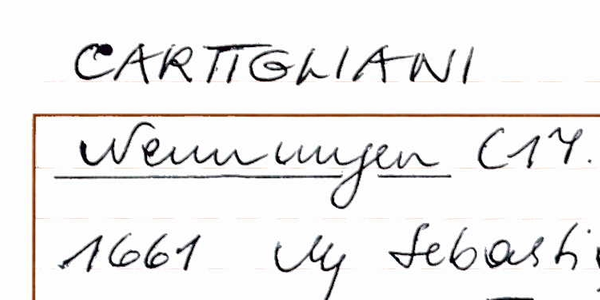 CARTIGLIANI
Wennungen (17.
1661 Mg Sebasti